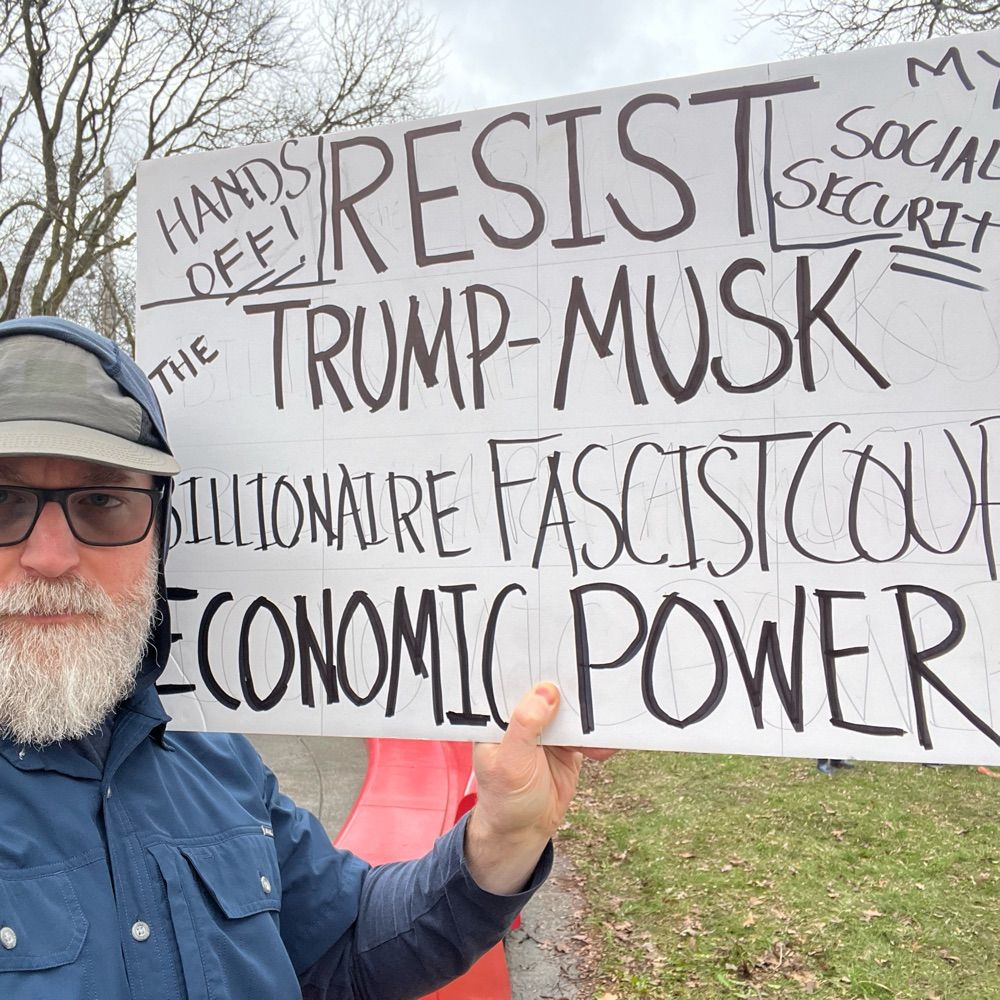 HANDS
OFF!
RESIST
MY
SOCIAL
SECURITY
THE TRUMP-MUSK
BILLIONAIRE FASCIST COUP
ECONOMIC POWER